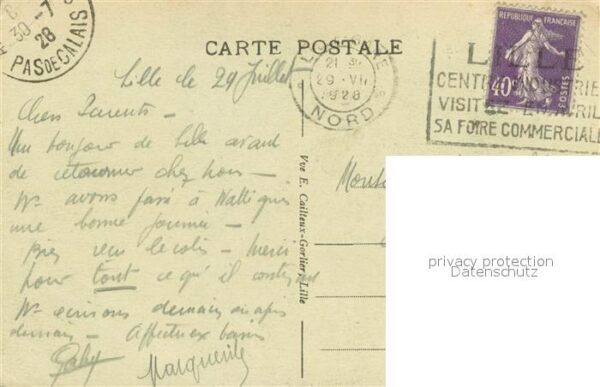 30-7
28
PAS DE CALAIS
CARTE POSTALE
LILLE
21 30
29 · VII
1928
NORD
REPUBLIQUE FRANÇAISE
40c
POSTES
LILLE
CENTRE
VISITEZ EN AVRIL
SA FOIRE COMMERCIALE
Lille le 29 Juillet
Chers Parents –
Un bonjour de Lille avant
de retourner chez nous –
Ns avons passé à Wattignies
une bonne journée –
Bien reçu le colis – Merci
pour tout ce qu'il contenait
Ns écrirons demain ou après
demain – Affectueux baisers
Gaby Marguerite
Vve E. Cailteux-Gorlier, Lille
privacy protection
Datenschutz